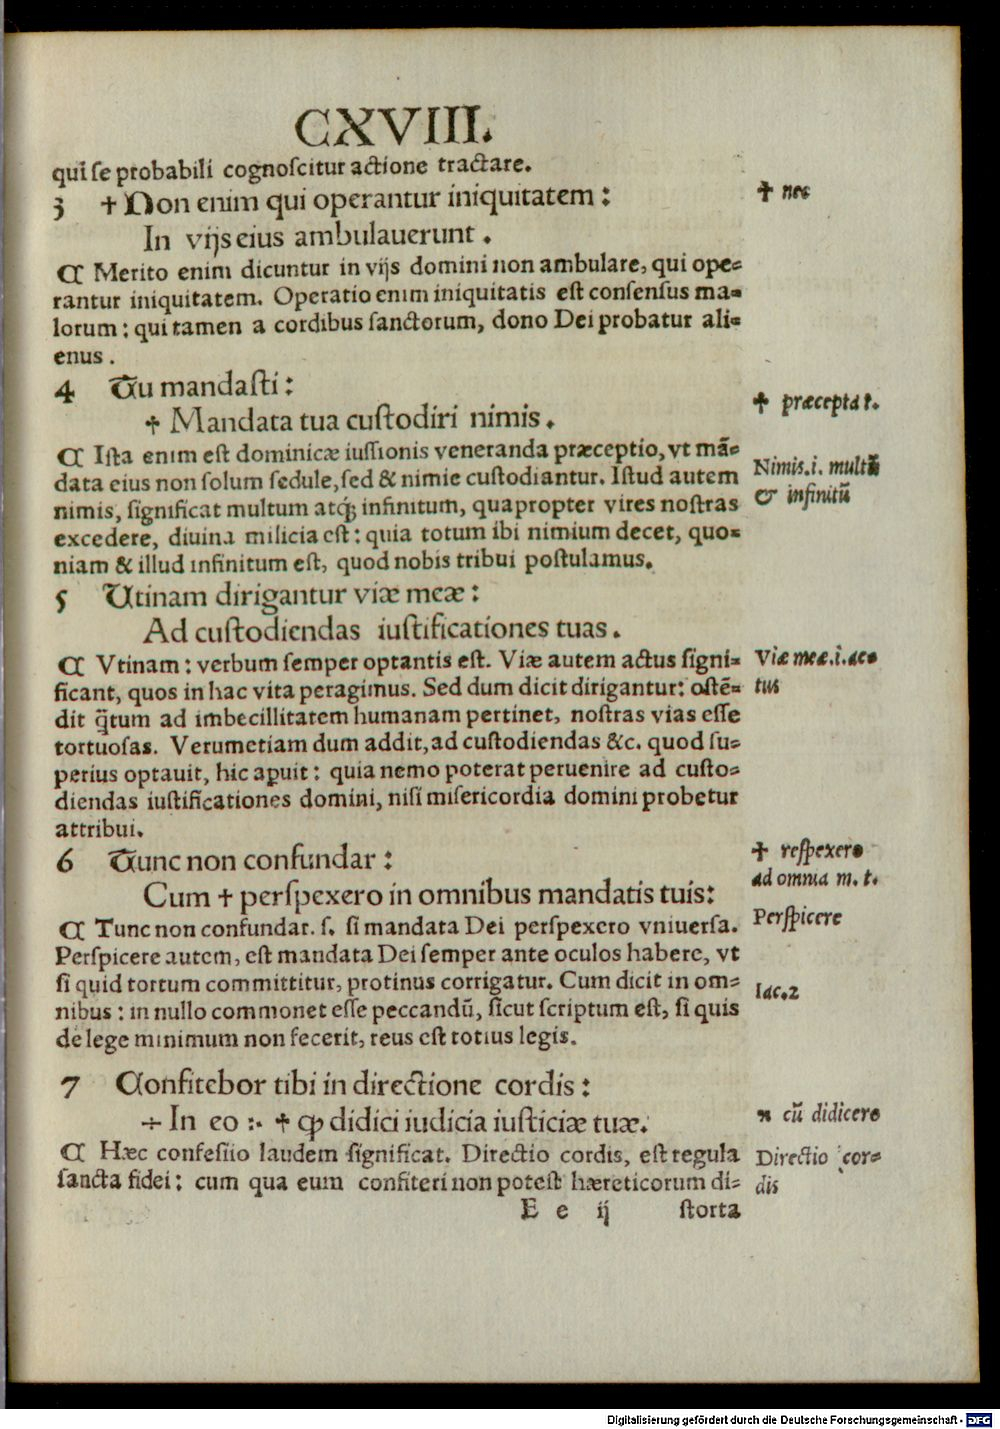 CXVIII.
qui se probabili cognoscitur actione tractare.
3 ✝ Non enim qui operantur iniquitatem :
✝ nec
In vijs eius ambulauerunt .
¶ Merito enim dicuntur in vijs domini non ambulare, qui ope=
rantur iniquitatem. Operatio enim iniquitatis est consensus ma=
lorum : qui tamen a cordibus sanctorum, dono Dei probatur ali=
enus .
4 Tu mandasti :
✝ præcepta t.
✝ Mandata tua custodiri nimis .
¶ Ista enim est dominicæ iussionis veneranda præceptio, vt mā=
Nimis.i. multū
data eius non solum sedule, sed & nimie custodiantur. Istud autem
& infinitū
nimis, significat multum atq; infinitum, quapropter vires nostras
excedere, diuina milicia est : quia totum ibi nimium decet, quo=
niam & illud infinitum est, quod nobis tribui postulamus.
5 Utinam dirigantur viæ meæ :
Ad custodiendas iustificationes tuas .
¶ Vtinam : verbum semper optantis est. Viæ autem actus signi=
Viæ meæ.i.ac=
ficant, quos in hac vita peragimus. Sed dum dicit dirigantur: ostē=
tus
dit q̄tum ad imbecillitatem humanam pertinet, nostras vias esse
tortuosas. Verumetiam dum addit, ad custodiendas &c. quod su=
perius optauit, hic aꝑuit : quia nemo poterat peruenire ad custo=
diendas iustificationes domini, nisi misericordia domini probetur
attribui.
6 Tunc non confundar :
✝ respexero
ad omnia m. t.
Cum ✝ perspexero in omnibus mandatis tuis:
Perspicere
¶ Tunc non confundar. s. si mandata Dei perspexero vniuersa.
Perspicere autem, est mandata Dei semper ante oculos habere, vt
si quid tortum committitur, protinus corrigatur. Cum dicit in om=
Iac.2
nibus : in nullo commonet esse peccandū, sicut scriptum est, si quis
de lege minimum non fecerit, reus est totius legis.
7 Confitebor tibi in directione cordis :
÷ In eo :· ✝ ꝙ didici iudicia iusticiæ tuæ.
cū didicero
¶ Hæc confessio laudem significat. Directio cordis, est regula
Directio cor=
sancta fidei : cum qua eum confiteri non potest hæreticorum di=
dis
E e ij storta
Digitalisierung gefördert durch die Deutsche Forschungsgemeinschaft - DFG